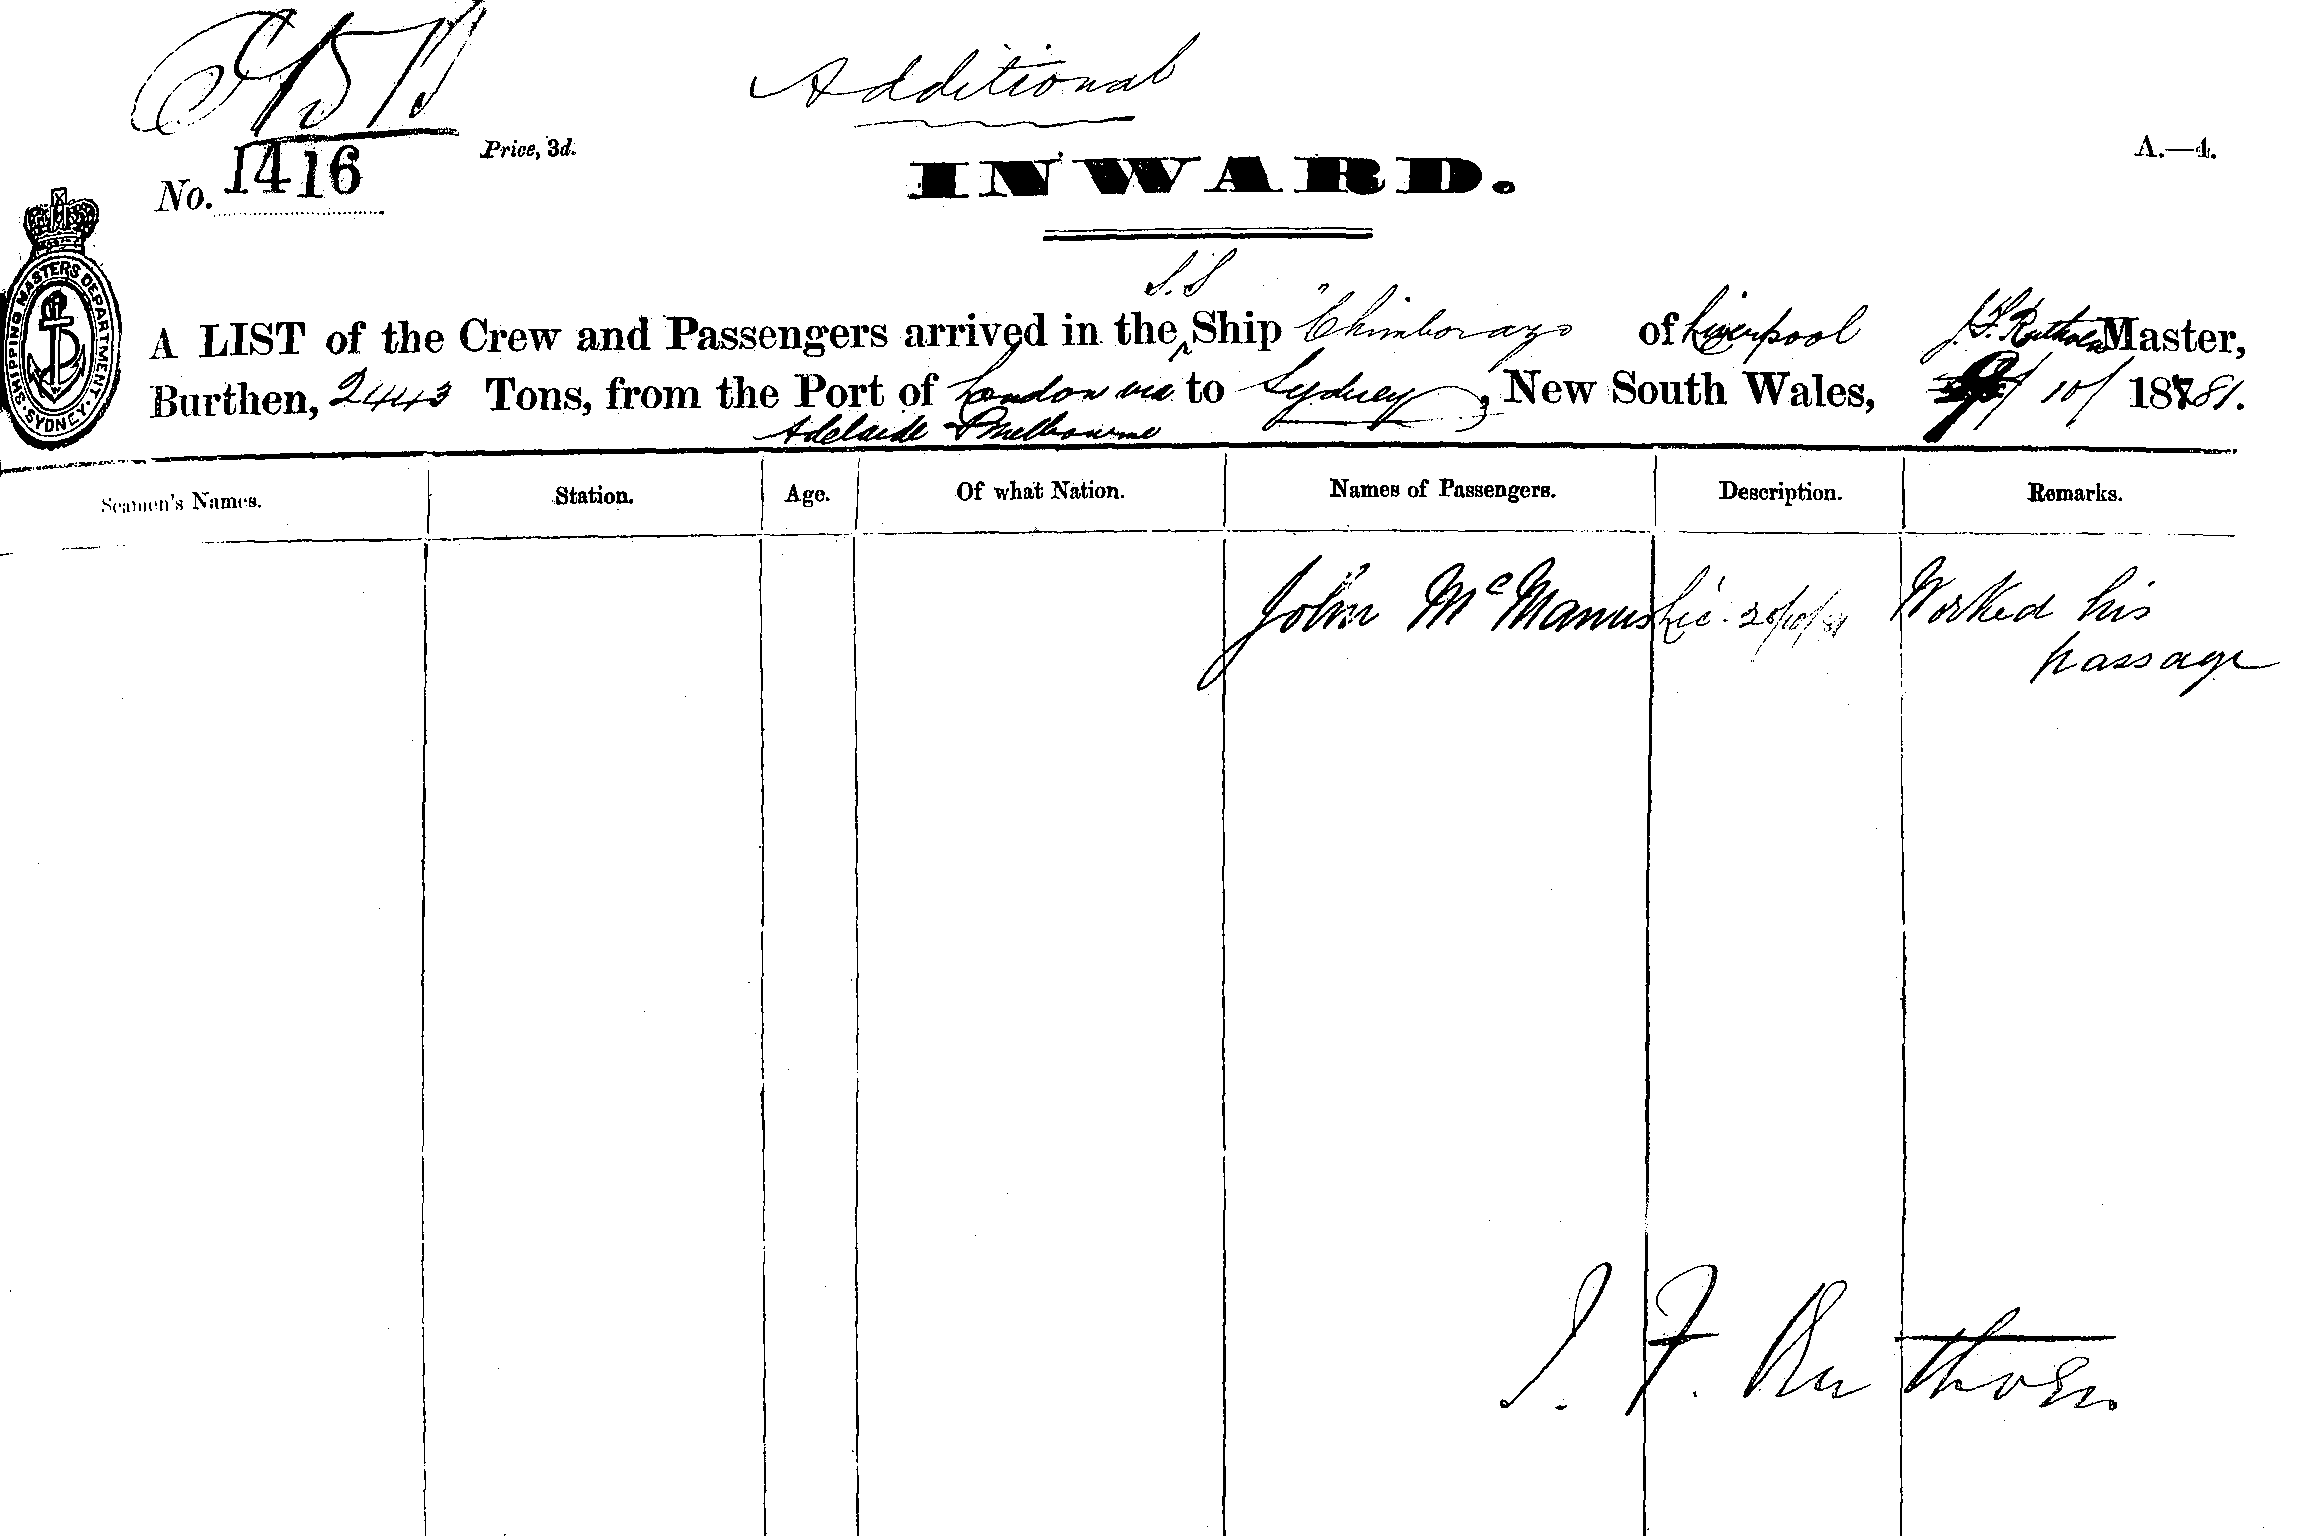 Additional
No. 1416 Price, 3d.
INWARD.
A.—4.
S.S
A LIST of the Crew and Passengers arrived in the ^ Ship "Chimborazo of Liverpool J. F. Ruthven Master,
Burthen, 2443 Tons, from the Port of London via to Sydney, New South Wales, 9/10/1881.
Adelaide & Melbourne
SHIPPING MASTERS DEPARTMENT. SYDNEY.
Seamen's Names. Station. Age. Of what Nation. Names of Passengers. Description. Remarks.
John McManus Worked his
passage
J. F. Ruthven